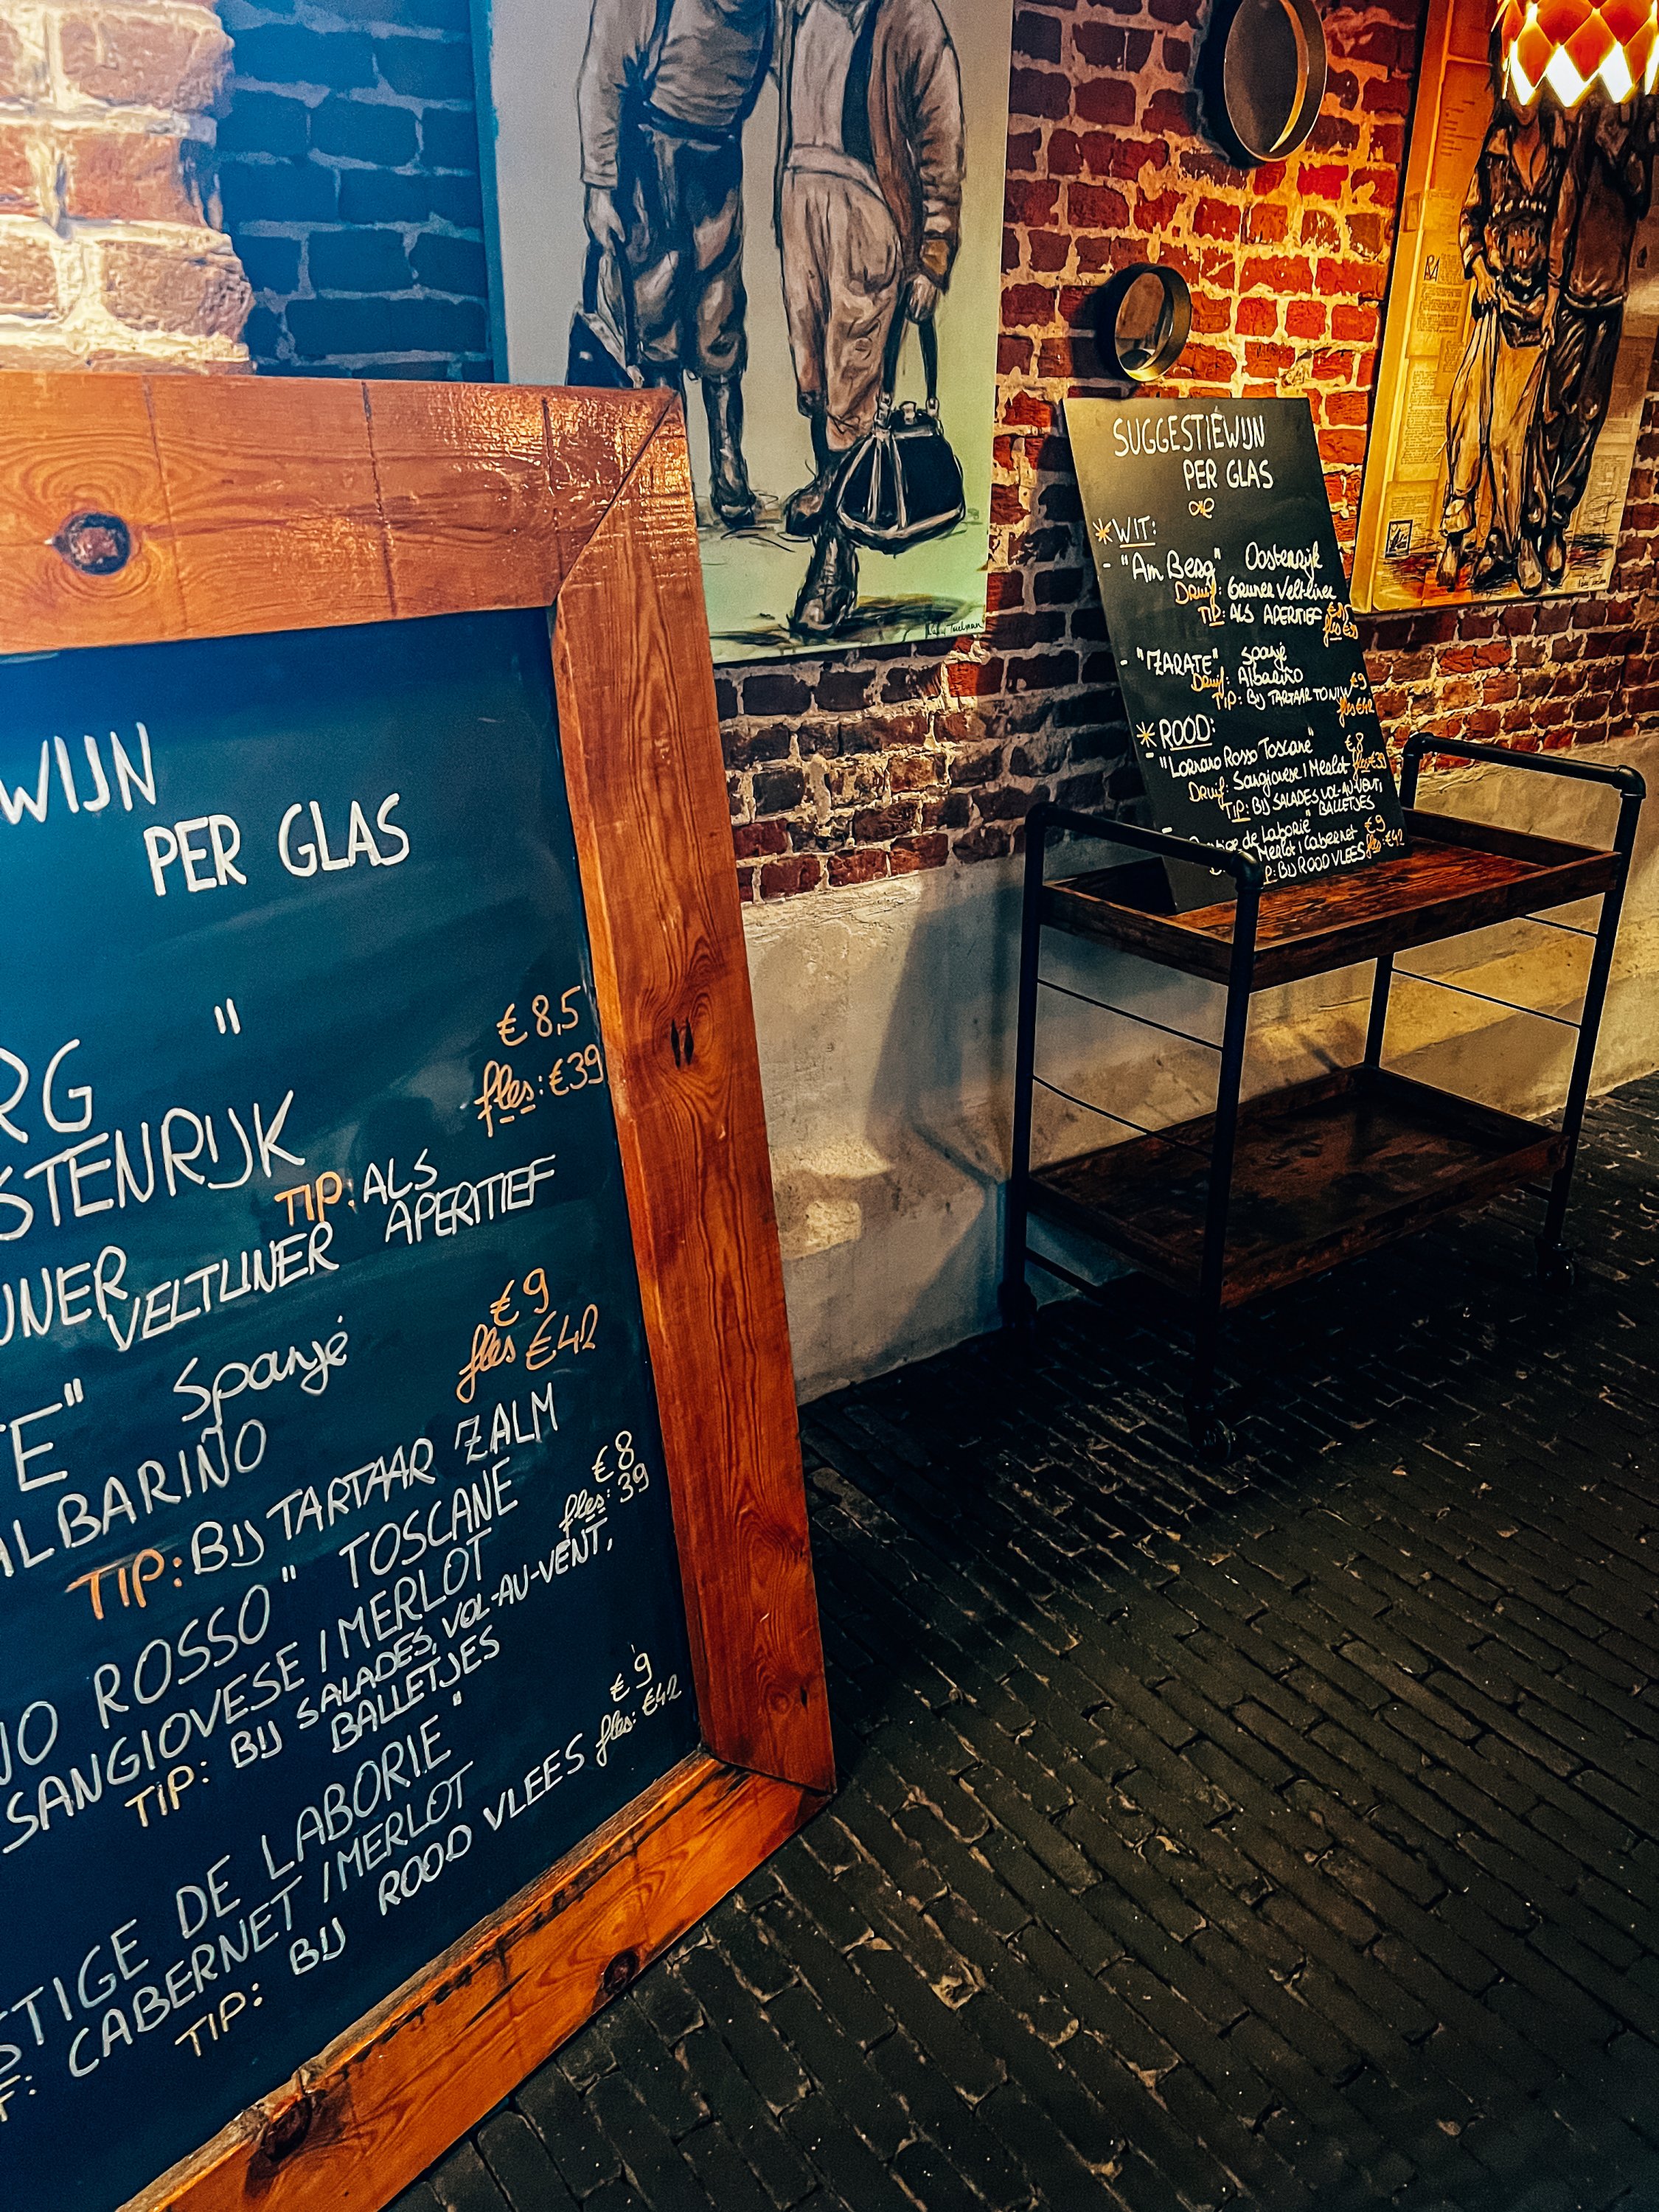 WIJN
PER GLAS
RG "
€8,5
fles: €39
STENRIJK
TIP: ALS
APERITIEF
UNER
VELTLINER
TE" Spanje
€9
fles €42
ALBARIÑO
TIP: BIJ TARTAAR ZALM
NO ROSSO" TOSCANE
€8
fles: 39
SANGIOVESE / MERLOT
TIP: BIJ SALADES, VOL-AU-VENT,
BALLETJES
STIGE DE LABORIE"
€9
fles: €42
F: CABERNET / MERLOT
TIP: BIJ ROOD VLEES
SUGGESTIEWIJN
PER GLAS
* WIT:
- "Am Berg" Oostenrijk
Druif: Gruner Veltliner
TIP: ALS APERITIEF €8,5
fles €39
- "ZARATE" Spanje
Druif: Albariño
€9
TIP: BIJ TARTAAR TONIJN
fles €42
* ROOD:
- "Lornano Rosso Toscane" €8
Druif: Sangiovese / Merlot fles €39
TIP: BIJ SALADES, VOL-AU-VENT,
BALLETJES
de Laborie" €9
Merlot / Cabernet fles: €42
TIP: BIJ ROOD VLEES